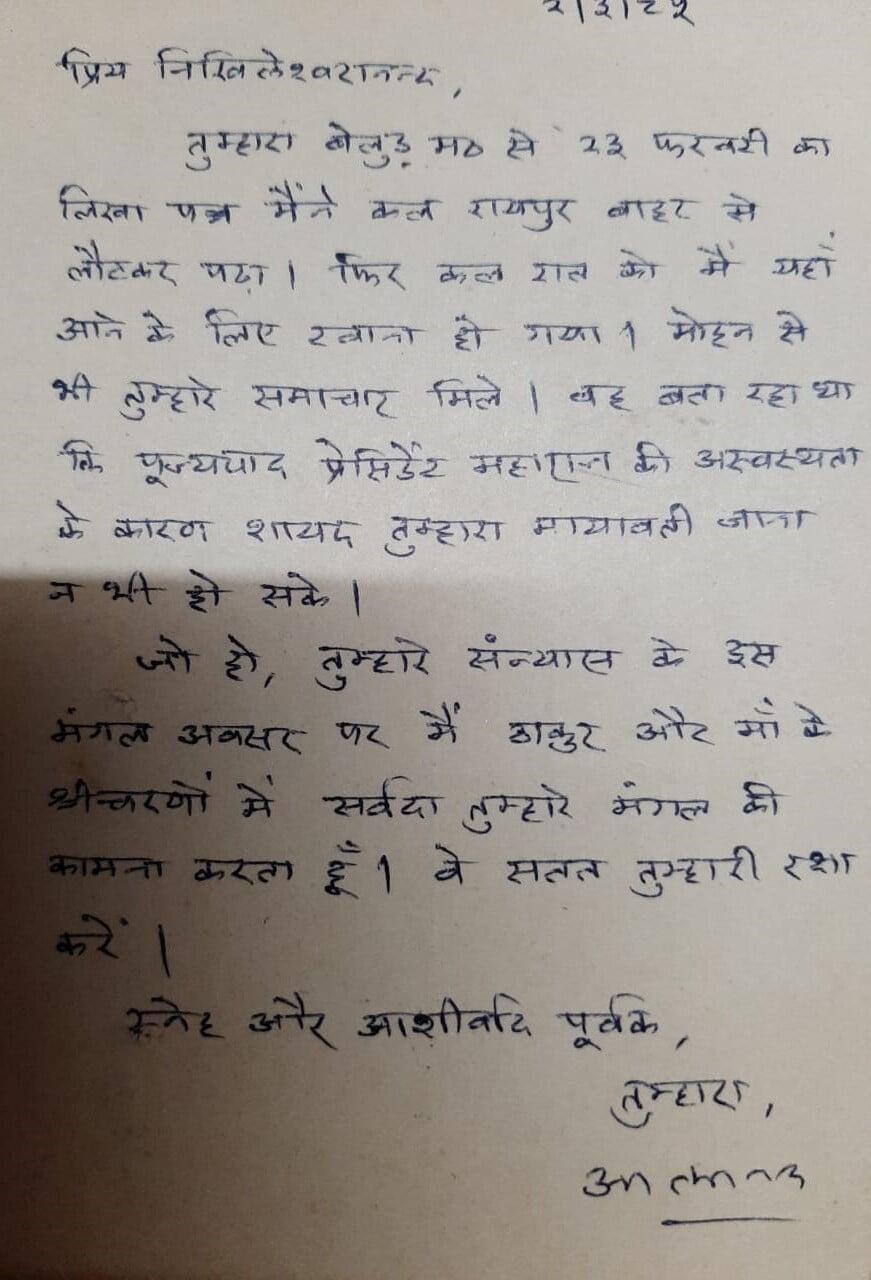 २।३।८५
प्रिय निखिलेश्वरानन्द,
तुम्हारा बेलुड़ मठ से २३ फरवरी का
लिखा पत्र मैंने कल रायपुर बाहर से
लौटकर पढ़ा। फिर कल रात को मैं यहाँ
आने के लिए रवाना हो गया। मोहन से
भी तुम्हारे समाचार मिले। वह बता रहा था
कि पूज्यपाद प्रेसिडेंट महाराज की अस्वस्थता
के कारण शायद तुम्हारा मायावती जाना
न भी हो सके।
जो हो, तुम्हारे संन्यास के इस
मंगल अवसर पर मैं ठाकुर और माँ के
श्रीचरणों में सर्वदा तुम्हारे मंगल की
कामना करता हूँ। वे सतत तुम्हारी रक्षा
करें।
स्नेह और आशीर्वाद पूर्वक,
तुम्हारा,
आत्मानन्द